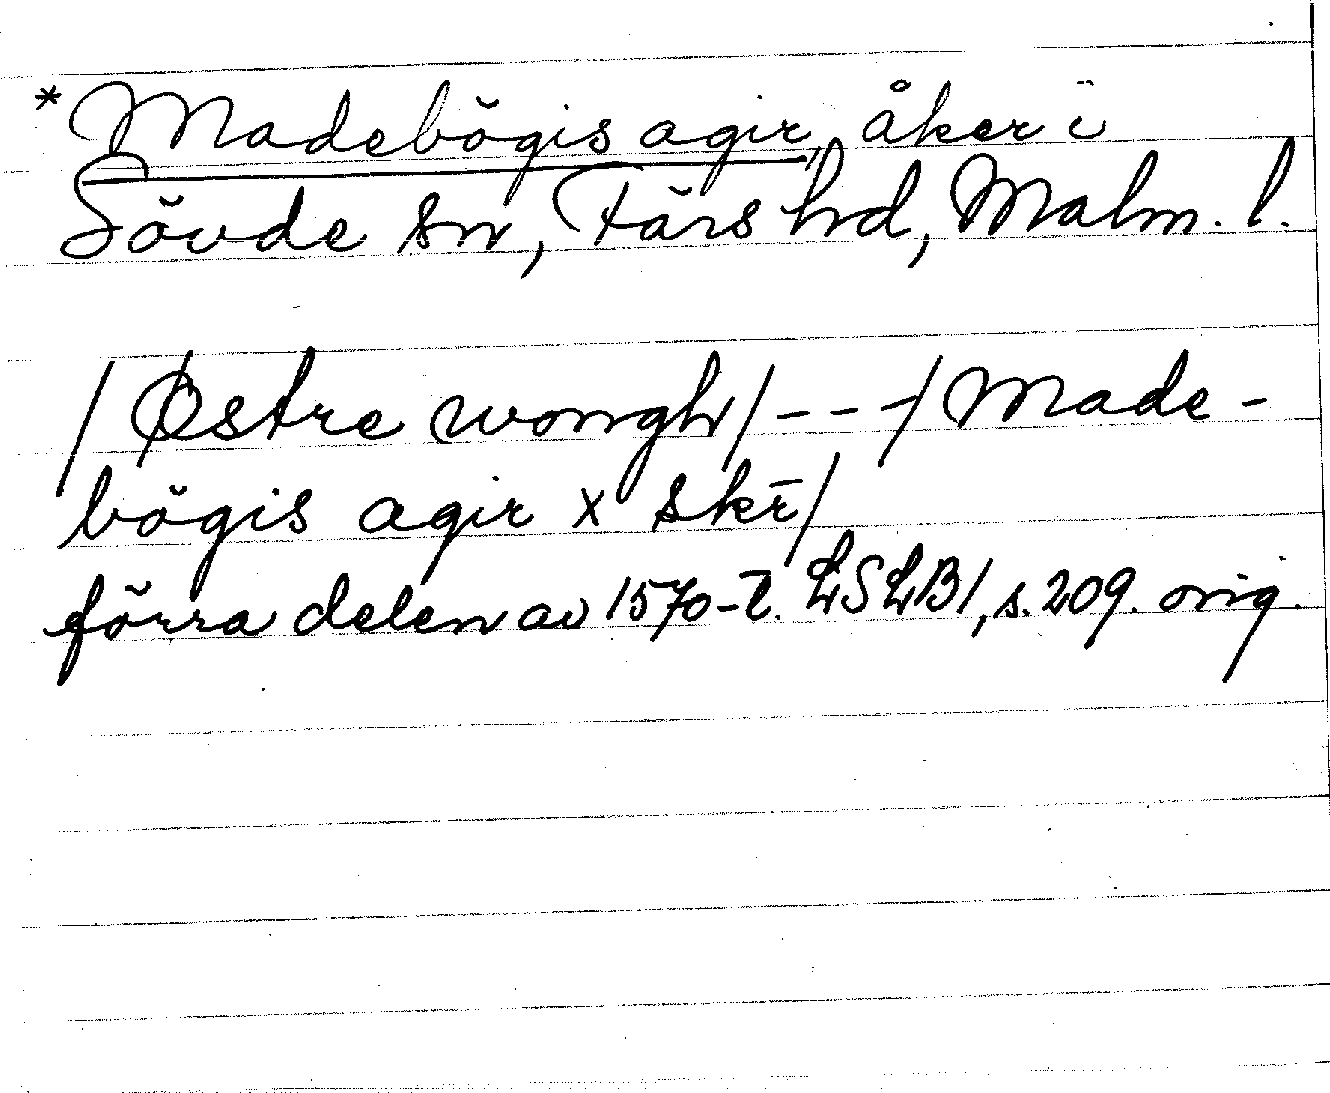 *Madebögis agir, åker i
Sövde sn, Färs hd, Malm. l.
/Østre wongh/---/Made-
bögis agir x skr̄/
förra delen av 1570-t. LSLB1, s. 209. orig.